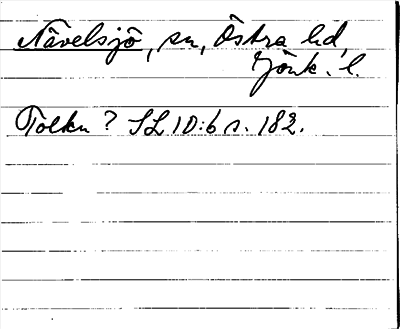 Nävelsjö, sn, Östra hd,
Jönk. l.
Tolkn? SL 10:6 s. 182.